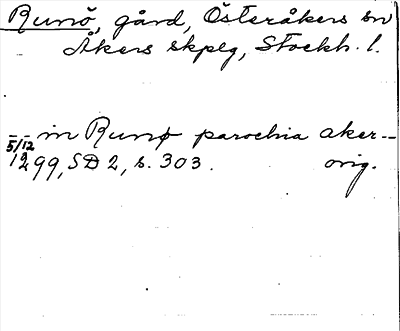 Runö, gård, Österåkers sn
Åkers skplg, Stockh. l.
-- in Runø parochia aker --
5/12 1299, SD 2, s. 303. orig.